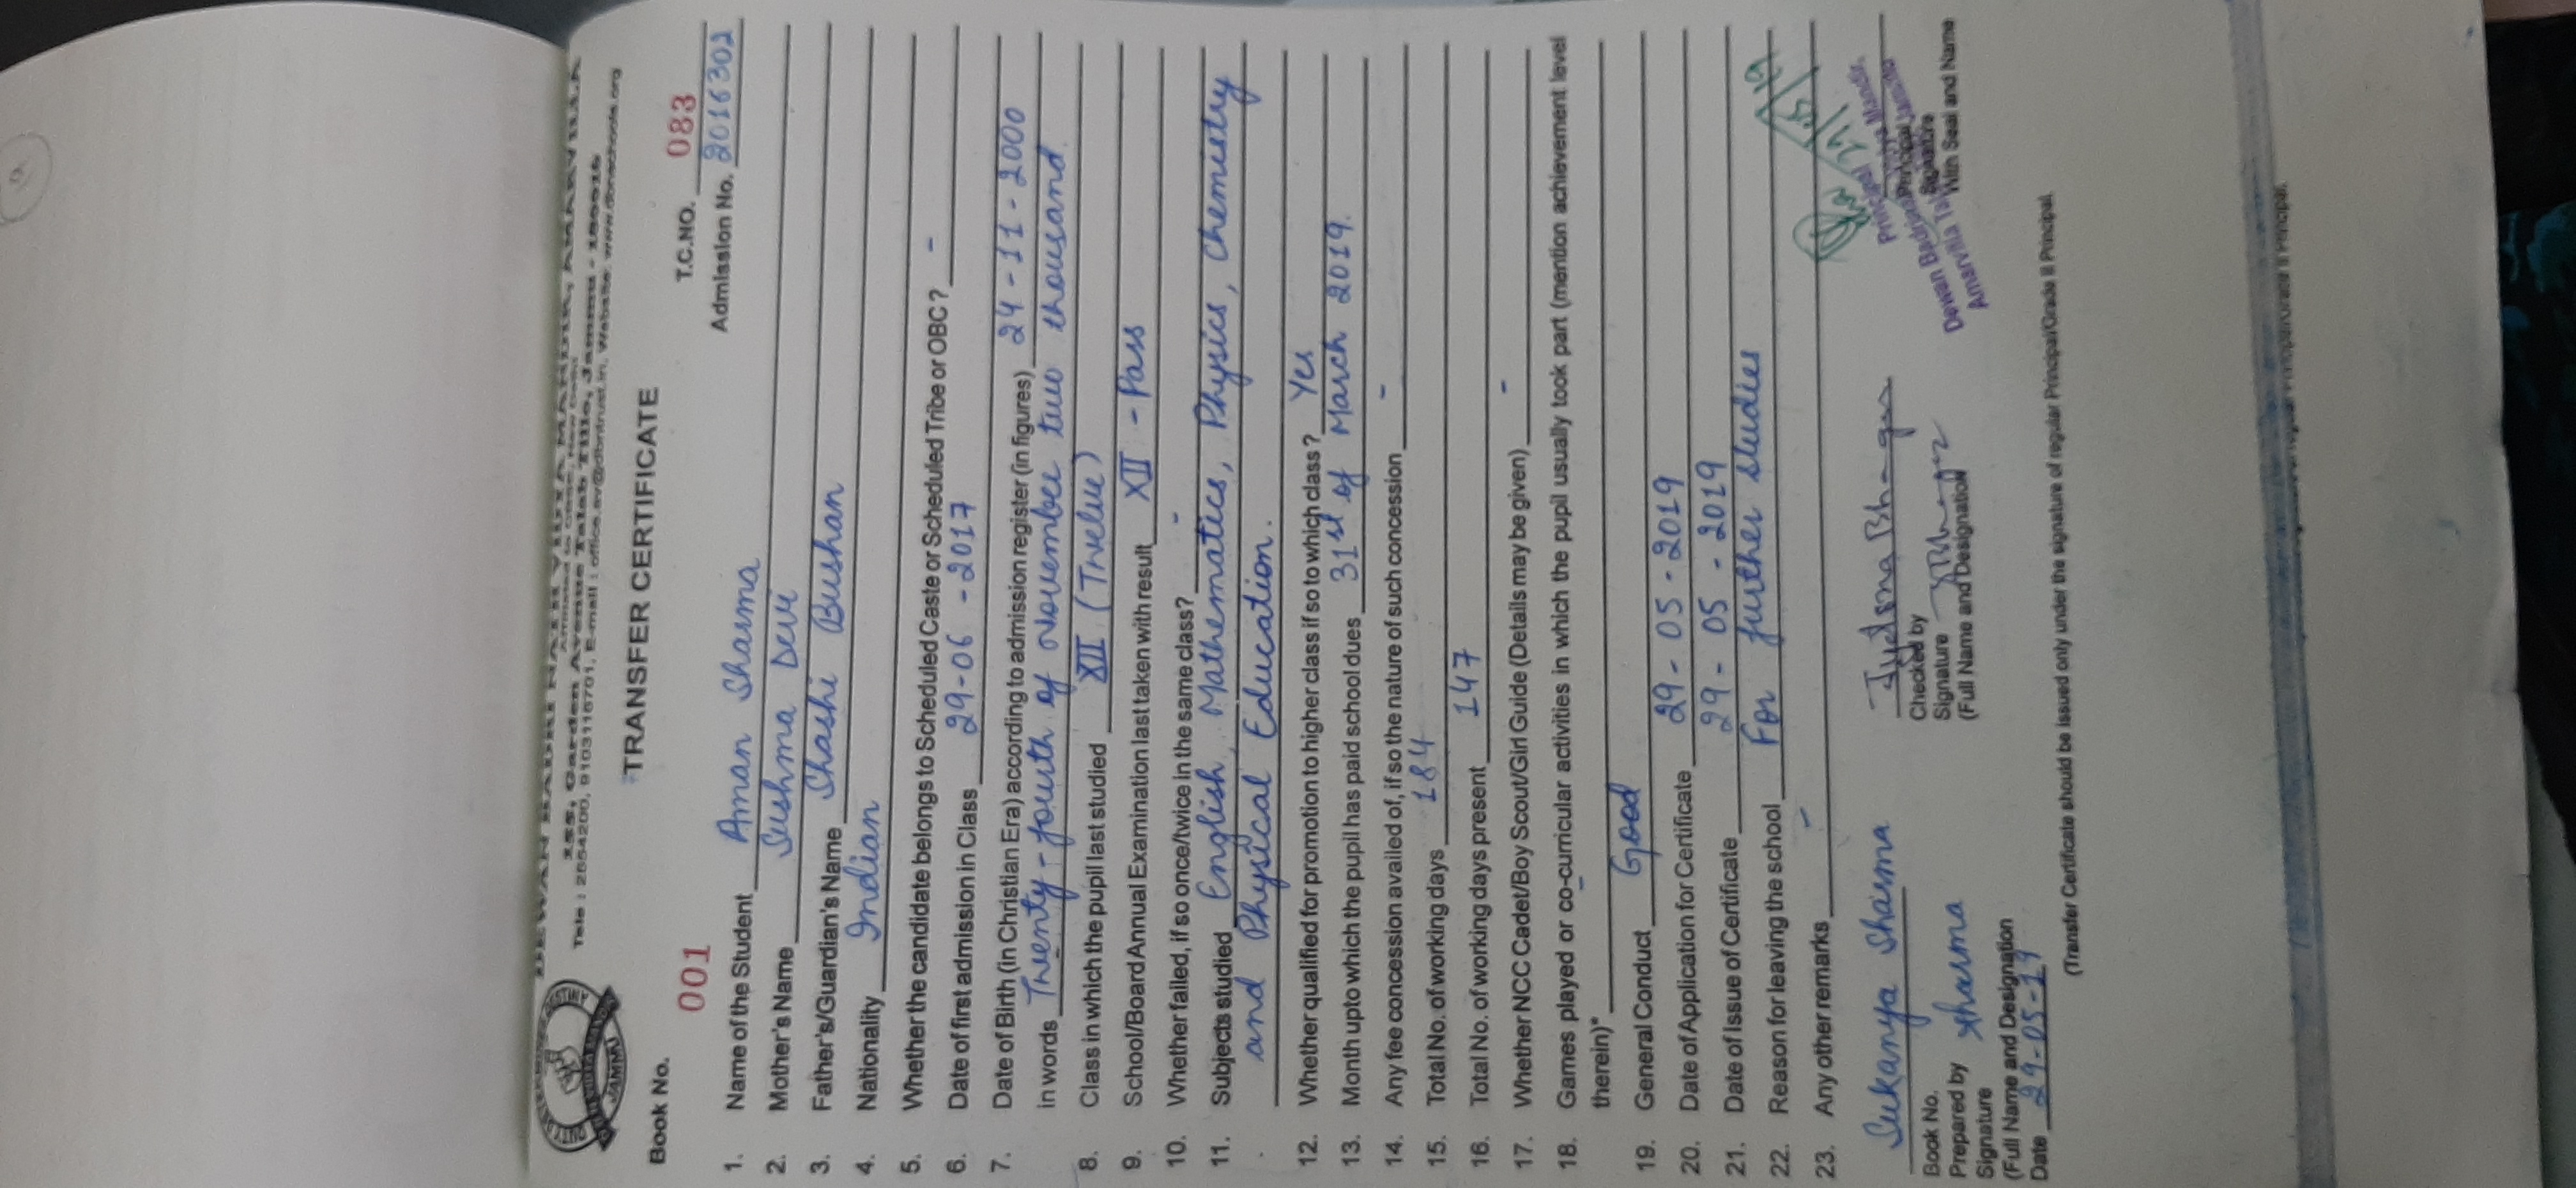 DEWAN BADRI NATH VIDYA MANDIR, AMARVILLA
155, Garden Avenue Talab Tillo, Jammu - 180016
Tele : 2554200, 9103116701, E-mail : office.av@dbntrust.in, Website: www.dbnschools.org
JAMMU
TRANSFER CERTIFICATE
Book No. 001 T.C.NO. 083
Admission No. 2016302
1. Name of the Student Aman Sharma
2. Mother's Name Sushma Devi
3. Father's/Guardian's Name Shashi Bushan
4. Nationality Indian
5. Whether the candidate belongs to Scheduled Caste or Scheduled Tribe or OBC? -
6. Date of first admission in Class 29-06-2017
7. Date of Birth (in Christian Era) according to admission register (in figures) 24-11-2000
in words Twenty-fourth of November two thousand
8. Class in which the pupil last studied XII (Twelve)
9. School/Board Annual Examination last taken with result XII - Pass
10. Whether failed, if so once/twice in the same class? -
11. Subjects studied English, Mathematics, Physics, Chemistry
and Physical Education.
12. Whether qualified for promotion to higher class if so to which class? Yes
13. Month upto which the pupil has paid school dues 31st of March 2019.
14. Any fee concession availed of, if so the nature of such concession -
15. Total No. of working days 184
16. Total No. of working days present 147
17. Whether NCC Cadet/Boy Scout/Girl Guide (Details may be given) -
18. Games played or co-curricular activities in which the pupil usually took part (mention achievement level
therein)* -
19. General Conduct Good
20. Date of Application for Certificate 29-05-2019
21. Date of Issue of Certificate 29-05-2019
22. Reason for leaving the school For further studies
23. Any other remarks -
Sukanya Sharma Jyotsna Bhangar
Book No. Checked by Principal
Prepared by Sharma Signature Signature
Signature (Full Name and Designation) With Seal and Name
(Full Name and Designation
Date 29-05-19
Principal
Dewan Badri Nath Vidya Mandir,
Amarvilla Talab Tillo, Jammu
(Transfer Certificate should be issued only under the signature of regular Principal/Grade II Principal.